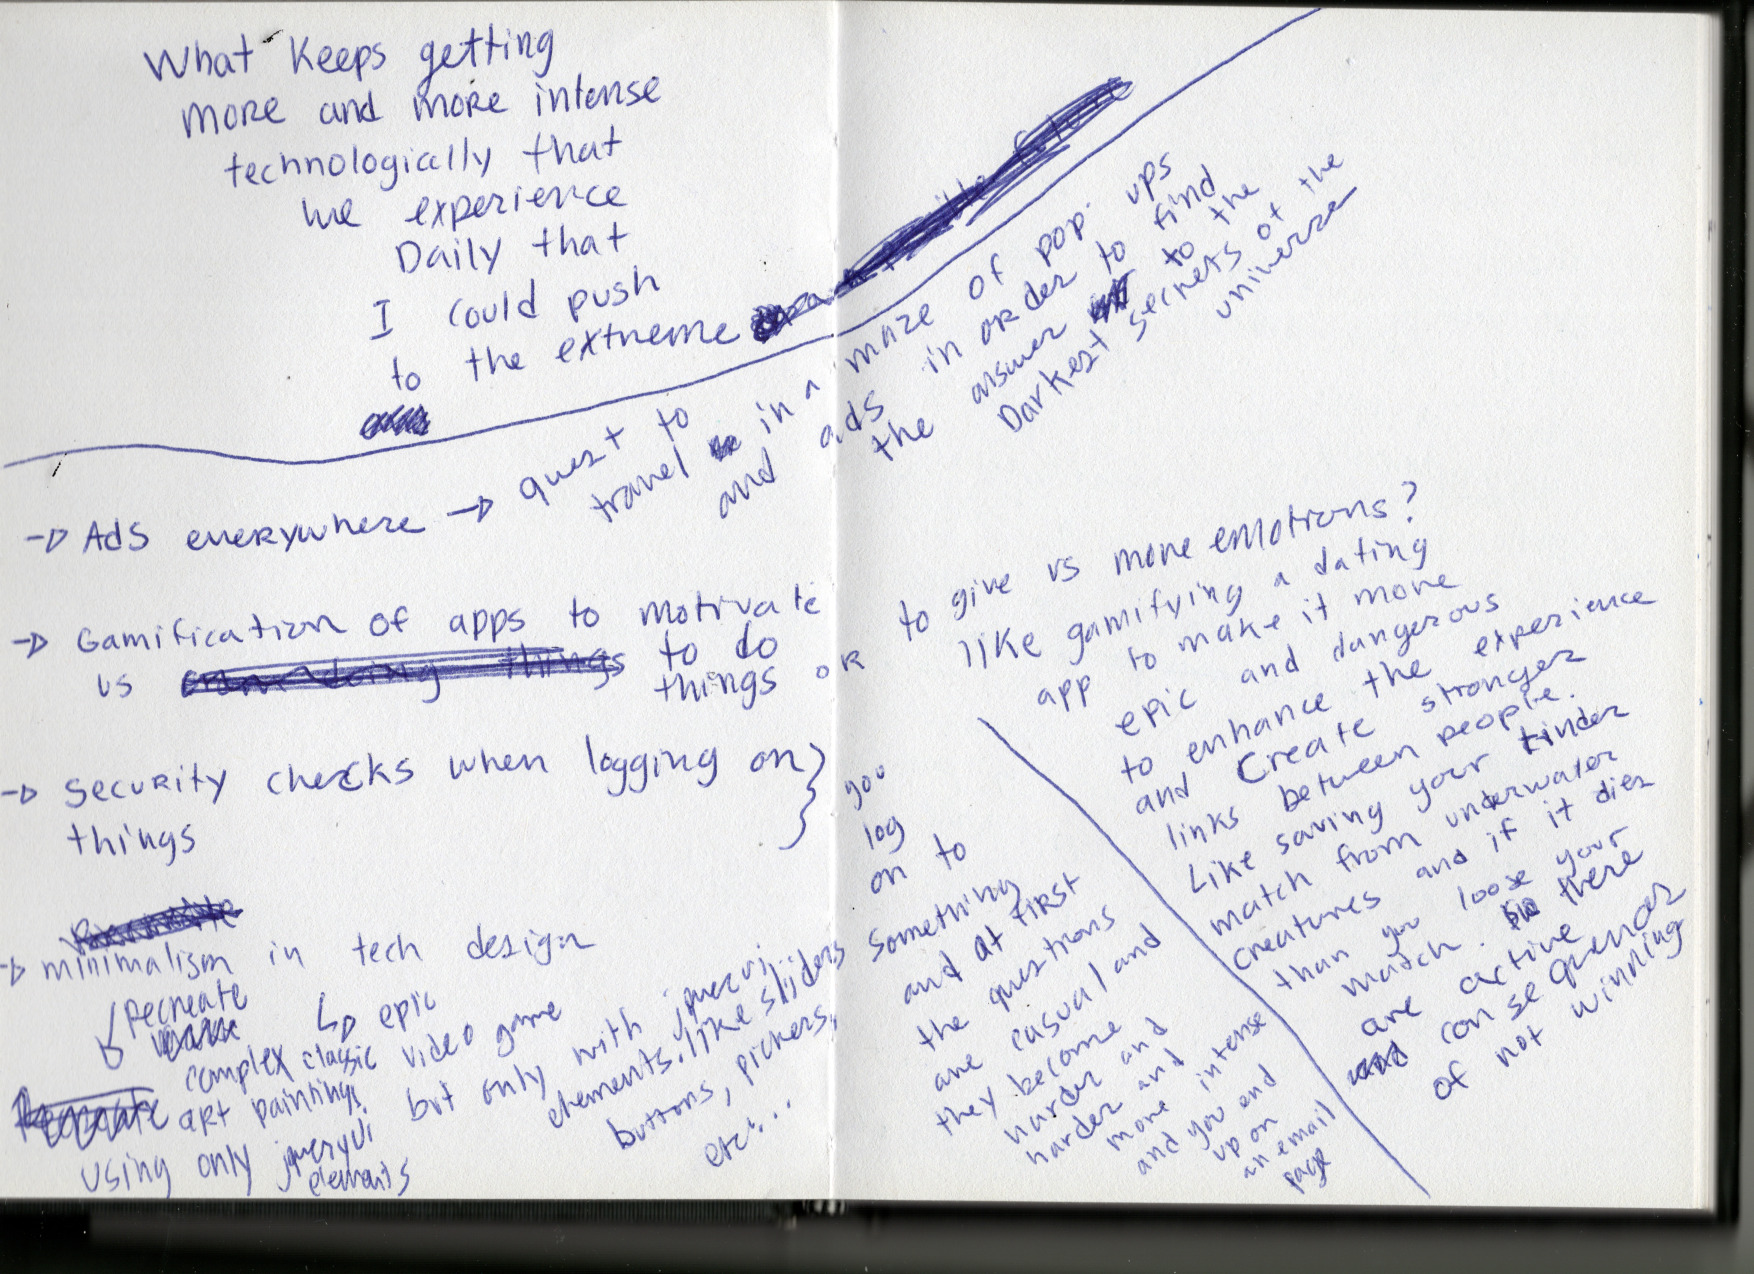 What keeps getting
more and more intense
technologically that
we experience
Daily that
I could push
to the extreme
-> Ads everywhere -> quest to
travel in a maze of pop ups
and ads in order to find
the answer to to the
Darkest secrets of the
universe
-> Gamification of apps to motivate
us to do
things or
to give us more emotions?
like gamifying a dating
app to make it more
epic and dangerous
to enhance the experience
and Create stronger
links between people.
Like saving your tinder
match from underwater
creatures and if it dies
than you loose your
match. there
are active
consequences
of not winning
-> Security checks when logging on
things
you
log
on to
something
and at first
the questions
are casual and
they become
harder and
harder and
more intense
and you end
up on
an email
page
-> minimalism in tech design
Recreate
complex classic
art paintings
using only jqueryUi
elements
epic
video game
but only with jquery ui
elements. like sliders
buttons, pickers,
etc...